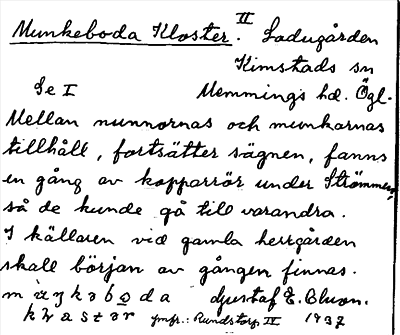 Munkeboda Kloster. II Ladugården
Kimstads sn
Se I Memmings hd. Ögl.
Mellan nunnornas och munkarnas
tillhåll, fortsätter sägnen, fanns
en gång av kopparrör under Strömmen,
så de kunde gå till varandra.
I källaren vid gamla herrgården
skall början av gången finnas.
Gustaf E. 
jmfr.: Rundstorp II 1937